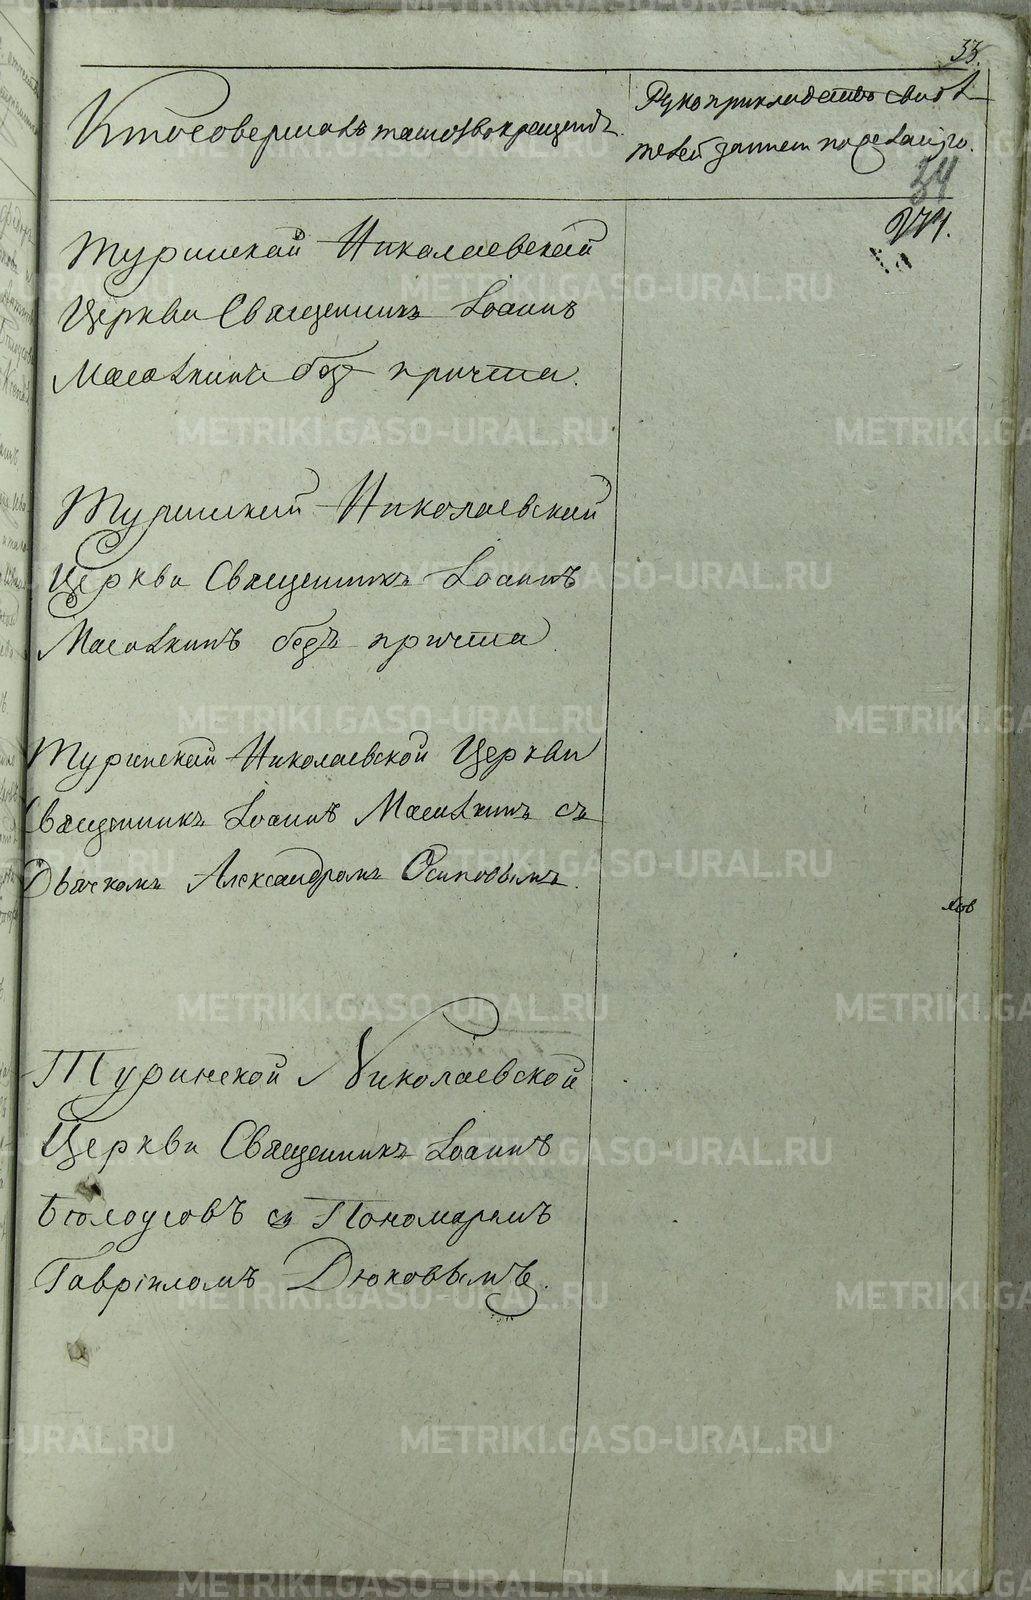 33.
Кто совершалъ таинство крещенія.
Рукоприкладство свидѣ
телей записи по желанiю.
34
Туринской Николаевской
Церкви Священникъ Iоаннъ
Масалкинъ безъ причта.
Туринской Николаевской
Церкви Священникъ Iоаннъ
Масалкинъ безъ причта
Туринской Николаевской Церкви
Священникъ Iоаннъ Масалкинъ съ
Дьячкомъ Александромъ Осиповымъ.
Туринской Николаевской
Церкви Священникъ Iоаннъ
Бѣлоусовъ съ Пономаремъ
Гаврiиломъ Дюковымъ.
METRIKI.GASO-URAL.RU